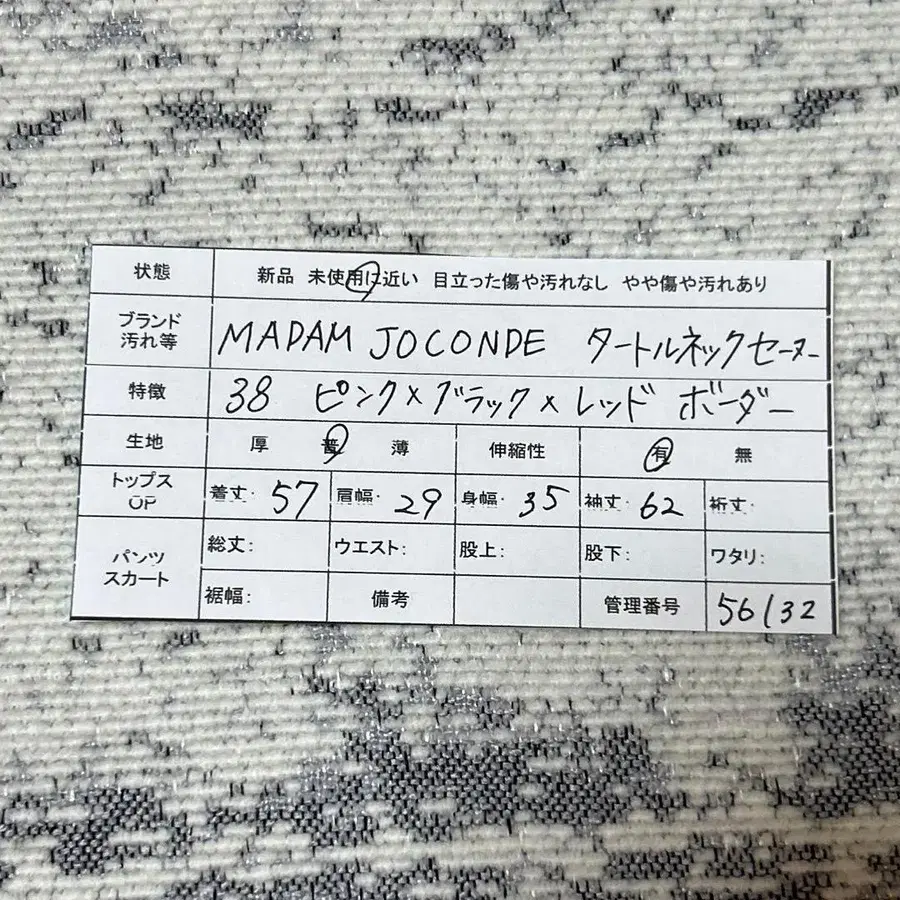 状態 新品 未使用に近い 目立った傷や汚れなし やや傷や汚れあり
ブランド 汚れ等 MADAM JOCONDE タートルネックセーター
特徴 38 ピンク×ブラック×レッド ボーダー
生地 厚 普 薄 伸縮性 有 無
トップス OP 着丈: 57 肩幅: 29 身幅: 35 袖丈: 62 裄丈:
パンツ スカート 総丈: ウエスト: 股上: 股下: ワタリ:
裾幅: 備考 管理番号 56132